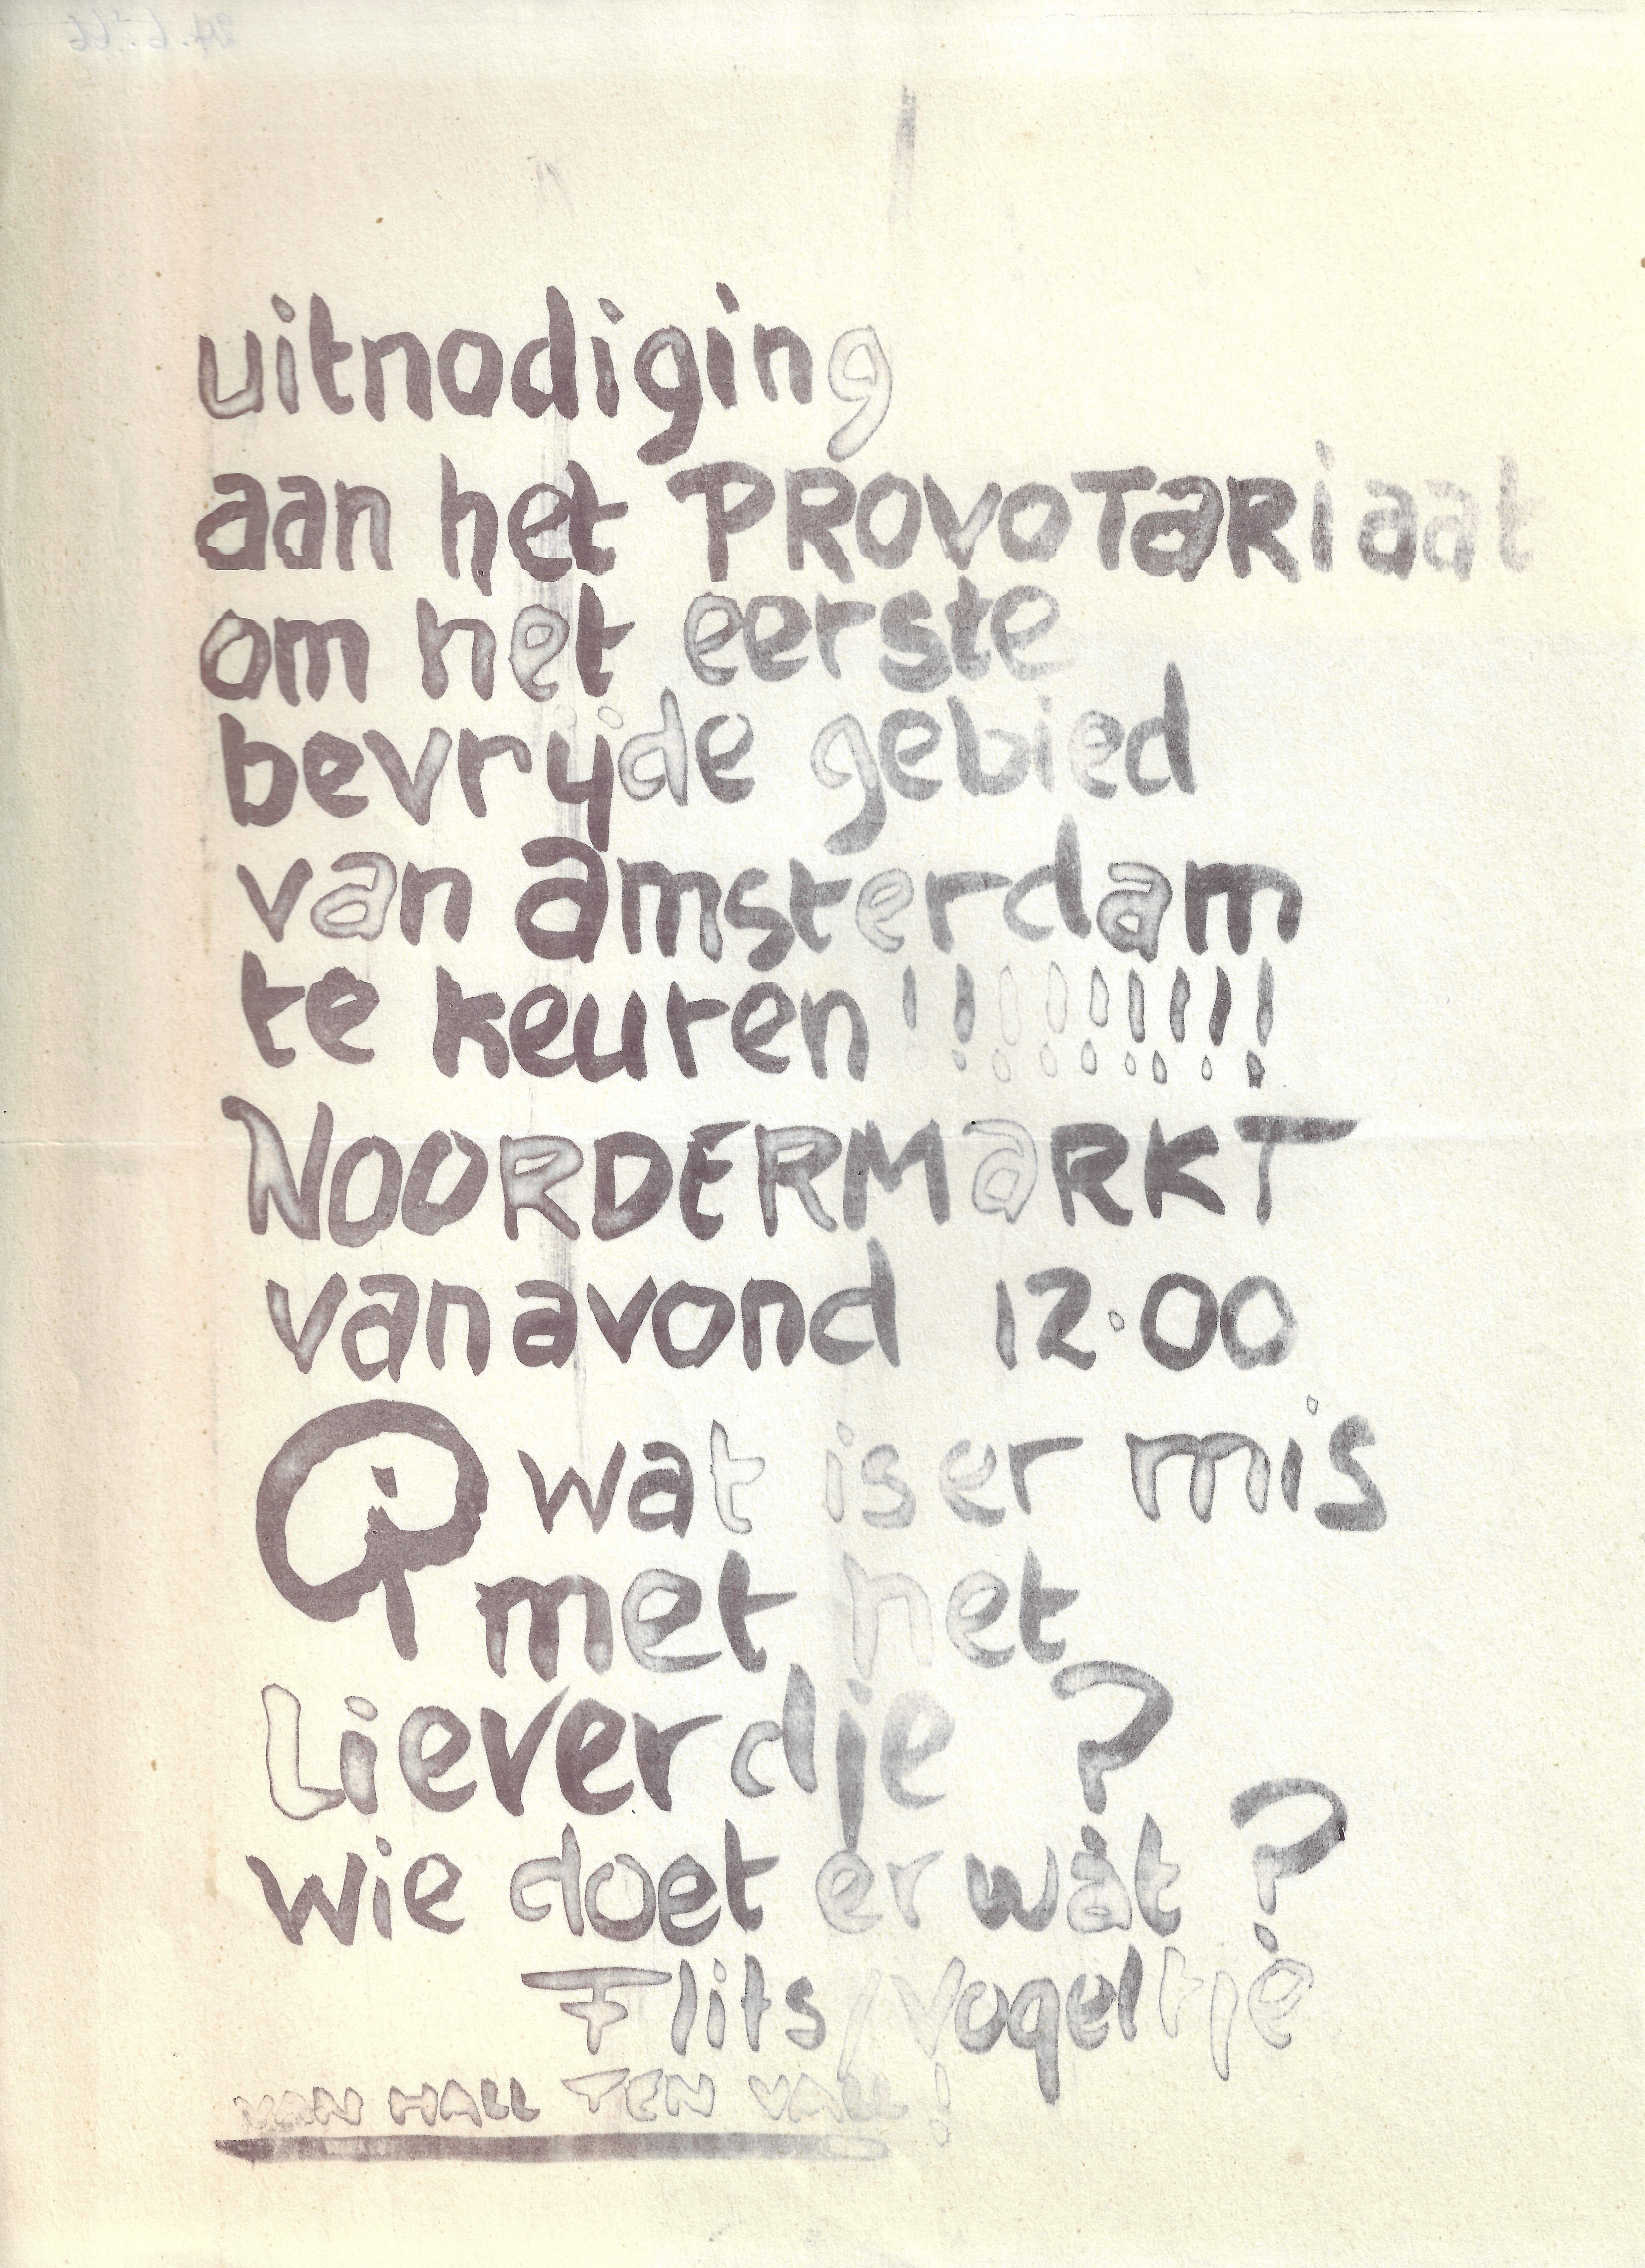 uitnodiging
aan het PROVOTARiaat
om het eerste
bevrijde gebied
van amsterdam
te keuren !!!!!!!!!
NOORDERMARKT
vanavond 12.00
wat is er mis
met het
Lieverdje ?
wie doet er wat ?
Flits / vogeltje
VAN HALL TEN VALL!